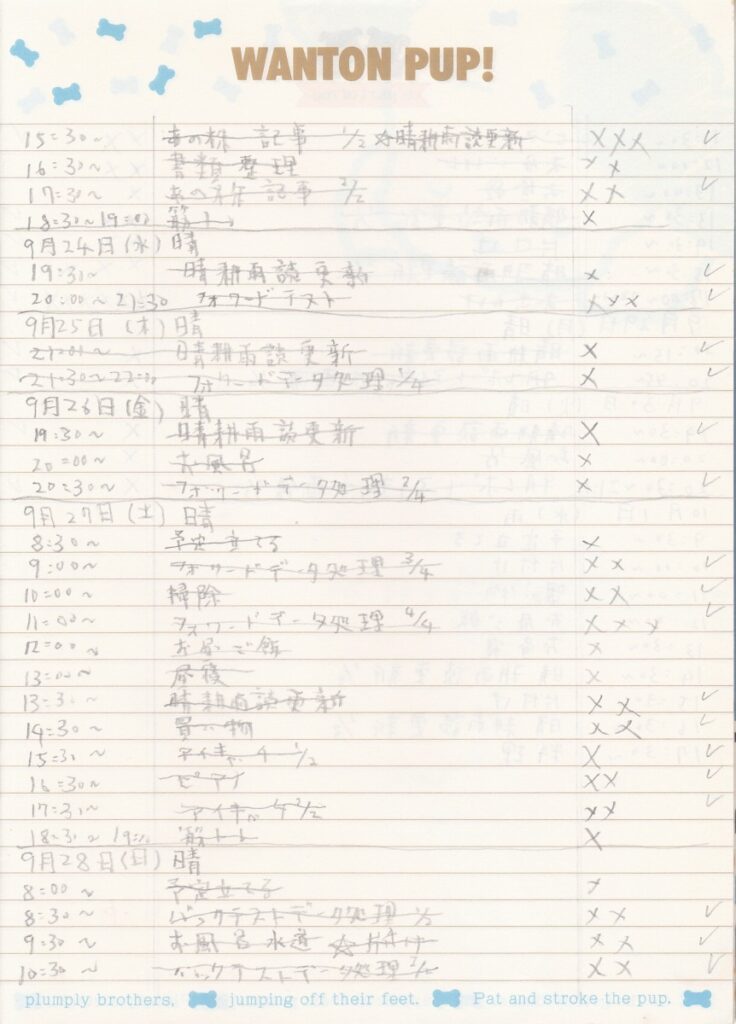 WANTON PUP!
15:30~ あの株 記事 1/2 ☆晴耕雨読更新 ××× ✓
16:30~ 書類整理 ××
17:30~ あの株 記事 2/2 ×× ✓
18:30~19:00 筋トレ ×
9月24日(水) 晴
19:30~ 晴耕雨読更新 × ✓
20:00~21:30 フォワードテスト ××× ✓
9月25日(木) 晴
21:00~ 晴耕雨読更新 × ✓
21:30~22:00 フォワードデータ処理 1/4 × ✓
9月26日(金) 晴
19:30~ 晴耕雨読更新 × ✓
20:00~ お風呂 ×
20:30~ フォワードデータ処理 2/4 × ✓
9月27日(土) 晴
8:30~ 予定立てる ×
9:00~ フォワードデータ処理 3/4 ×× ✓
10:00~ 掃除 ×× ✓
11:00~ フォワードデータ処理 4/4 ××× ✓
12:00~ お昼ご飯 ×
13:00~ 昼寝 ×
13:30~ 晴耕雨読更新 ×× ✓
14:30~ 買い物 ×× ✓
15:30~ 1/2 × ✓
16:30~ ×× ✓
17:30~ 2/2 ×× ✓
18:30~19:00 筋トレ ×
9月28日(日) 晴
8:00~ 予定立てる ×
8:30~ バックテストデータ処理 1/2 ×× ✓
9:30~ お風呂水道 ☆片付け ×× ✓
10:30~ バックテストデータ処理 2/2 ×× ✓
plumply brothers. jumping off their feet. Pat and stroke the pup.